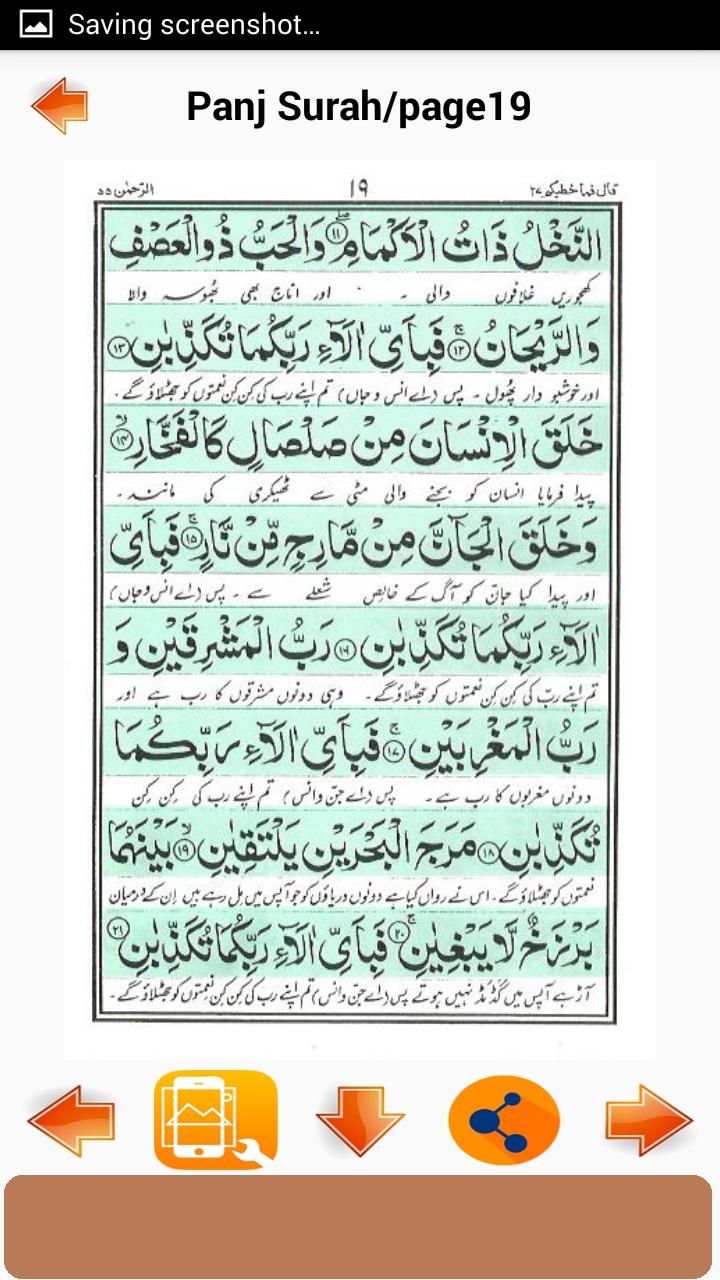 Saving screenshot...
Panj Surah/page19
قال فما خطبكم ٢٧ ١٩ الرّحمٰن ٥٥
النَّخْلُ ذَاتُ الْاَكْمَامِ ۖ‏﴿۱۱﴾ وَالْحَبُّ ذُو الْعَصْفِ
کھجوریں غلافوں والی ۔ اور اناج بھی بھُوسہ والا
وَالرَّيْحَانُ ۚ‏﴿۱۲﴾ فَبِاَىِّ اٰلَآءِ رَبِّكُمَا تُكَذِّبٰنِ ﴿۱۳﴾
اور خوشبو دار پھُول ۔ پس (اے انس و جاں) تم اپنے رب کی کن کن نعمتوں کو جھٹلاؤ گے ۔
خَلَقَ الْاِنْسَانَ مِنْ صَلْصَالٍ كَالْفَخَّارِ ۙ‏﴿۱۴﴾
پیدا فرمایا انسان کو بجنے والی مٹی سے ٹھیکری کی مانند ۔
وَخَلَقَ الْجَآنَّ مِنْ مَّارِجٍ مِّنْ نَّارٍ ۚ‏﴿۱۵﴾ فَبِاَىِّ
اور پیدا کیا جانّ کو آگ کے خالص شعلے سے ۔ پس (اے انس و جاں)
اٰلَآءِ رَبِّكُمَا تُكَذِّبٰنِ ﴿۱۶﴾ رَبُّ الْمَشْرِقَيْنِ وَ
تم اپنے ربّ کی کِن کِن نعمتوں کو جھٹلاؤ گے ۔ وہی دونوں مشرقوں کا رب ہے اور
رَبُّ الْمَغْرِبَيْنِ ۚ‏﴿۱۷﴾ فَبِاَىِّ اٰلَآءِ رَبِّكُمَا
دونوں مغربوں کا رب ہے ۔ پس (اے جنّ و انس) تم اپنے رب کی کِن کِن
تُكَذِّبٰنِ ﴿۱۸﴾ مَرَجَ الْبَحْرَيْنِ يَلْتَقِيٰنِ ۙ‏﴿۱۹﴾ بَيْنَهُمَا
نعمتوں کو جھٹلاؤ گے ۔ اس نے رواں کیا ہے دونوں دریاؤں کو جو آپس میں مل رہے ہیں اِن کے درمیان
بَرْزَخٌ لَّا يَبْغِيٰنِ ۚ‏﴿۲۰﴾ فَبِاَىِّ اٰلَآءِ رَبِّكُمَا تُكَذِّبٰنِ ﴿۲۱﴾
آڑ ہے آپس میں گڈ مڈ نہیں ہوتے پس (اے جنّ و انس) تم اپنے رب کی کن کن نعمتوں کو جھٹلاؤ گے ۔